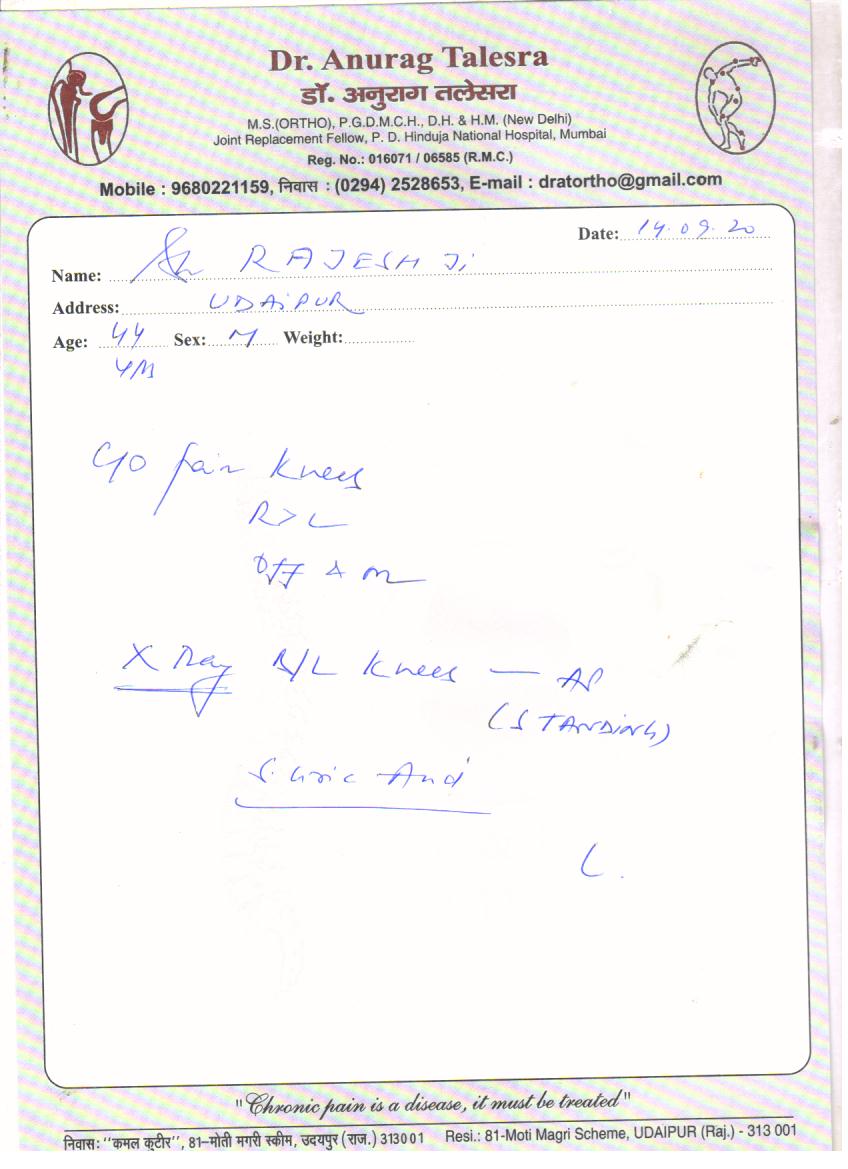 Dr. Anurag Talesra
डॉ. अनुराग तलेसरा
M.S.(ORTHO), P.G.D.M.C.H., D.H. & H.M. (New Delhi)
Joint Replacement Fellow, P. D. Hinduja National Hospital, Mumbai
Reg. No.: 016071 / 06585 (R.M.C.)
Mobile : 9680221159, निवास : (0294) 2528653, E-mail : dratortho@gmail.com
Date: 14.09.20
Name: Sh RAJESH Ji
Address: UDAiPUR
Age: 44 Sex: M Weight:
C/O pain knees
R>L
Off & on
X Ray B/L knees — AP
(STANDiNG)
S. Uric Acid
"Chronic pain is a disease, it must be treated"
निवासः "कमल कूटीर", 81–मोती मगरी स्कीम, उदयपुर (राज.) 313001 Resi.: 81-Moti Magri Scheme, UDAIPUR (Raj.) - 313 001